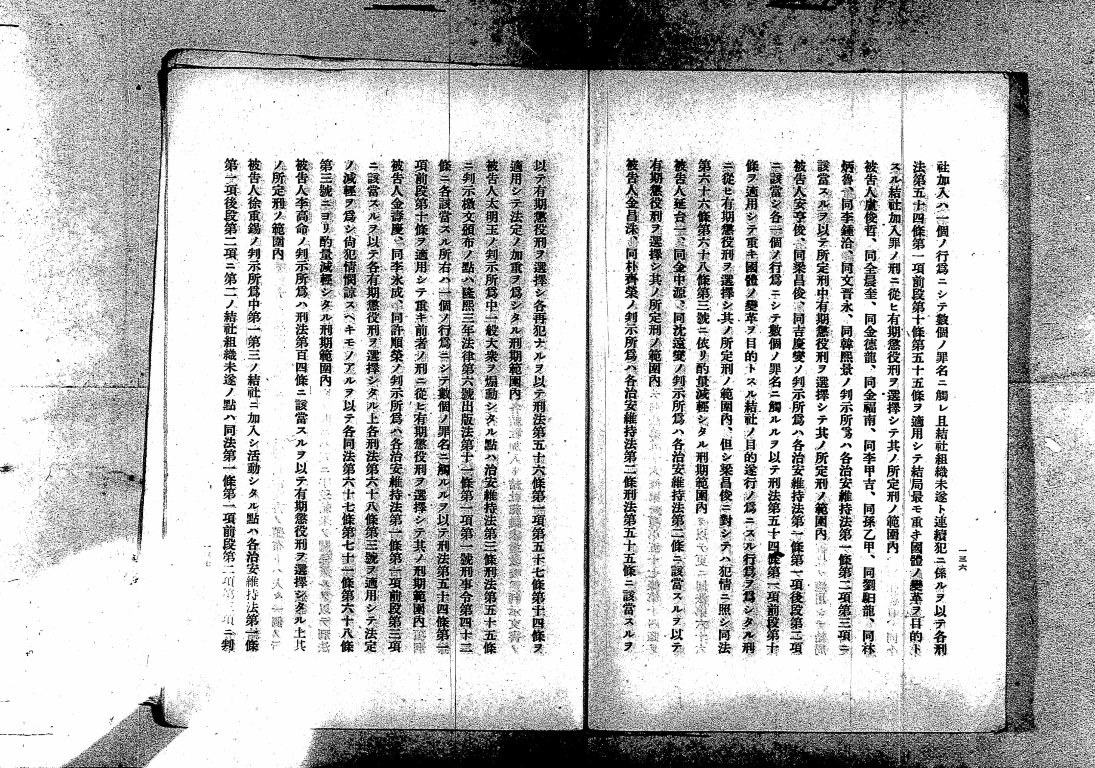 一三六
社加入ハ一個ノ行爲ニシテ數個ノ罪名ニ觸レ且結社組織未遂ト連續犯ニ係ルヲ以テ各刑
法第五十四條第一項前段第十條第五十五條ヲ適用シテ結局最モ重キ國體ノ變革ヲ目的ト
スル結社加入罪ノ刑ニ從ヒ有期懲役刑ヲ選擇シテ其ノ所定刑ノ範圍內
被告人盧俊哲、同全晨奎、同金德龍、同金福南、同李甲吉、同孫乙甲、同劉龍、同林
炳魯、同李鍾洽、同文晋永、同韓熙景ノ判示所爲ハ各治安維持法第一條第二項第三項ニ
該當スルヲ以テ所定刑中有期懲役刑ヲ選擇シテ其ノ所定刑ノ範圍內
被告人安亨俊、同梁昌俊、同吉慶燮ノ判示所爲ハ各治安維持法第一條第一項後段第二項
ニ該當シ各一個ノ行爲ニシテ數個ノ罪名ニ觸ルルヲ以テ刑法第五十四條第一項前段第十
條ヲ適用シテ重キ國體ノ變革ヲ目的トスル結社ノ目的遂行ノ爲ニスル行爲ヲ爲シタル刑
ニ從ヒ有期懲役刑ヲ選擇シ其ノ所定刑ノ範圍內、但シ梁昌俊ニ對シテハ犯情ニ照シ同法
第六十六條第六十八條第三號ニ依リ酌量減輕シタル刑期範圍內
被告人延台一、同金中源、同沈遠燮ノ判示所爲ハ各治安維持法第二條ニ該當スルヲ以テ
有期懲役刑ヲ選擇シ其ノ所定刑ノ範圍內
被告人金昌洙、同朴齊榮ノ判示所爲ハ各治安維持法第二條刑法第五十五條ニ該當スルヲ
以テ有期懲役刑ヲ選擇シ各再犯ナルヲ以テ刑法第五十六條第一項第五十七條第十四條ヲ
適用シテ法定ノ加重ヲ爲シタル刑期範圍內
被告人太明玉ノ判示所爲中一般大衆ヲ煽動シタル點ハ治安維持法第三條刑法第五十五條
ニ判示檄文頒布ノ點ハ隆熙三年法律第六號出版法第十一條第一項第一號刑事令第四十二
條ニ各該當スル所右ハ一個ノ行爲ニシテ數個ノ罪名ニ觸ルルヲ以テ刑法第五十四條第一
項前段第十條ヲ適用シテ重キ前者ノ刑ニ從ヒ有期懲役刑ヲ選擇シテ其ノ刑期範圍內
被告人金壽慶、同李永成、同許順榮ノ判示所爲ハ各治安維持法第一條第一項前段第三項
ニ該當スルヲ以テ各有期懲役刑ヲ選擇シタル上各刑法第六十八條第三號ヲ適用シテ法定
ノ減輕ヲ爲シ尙犯情憫諒スヘキモノアルヲ以テ各同法第六十七條第七十一條第六十八條
第三號ニヨリ酌量減輕シタル刑期範圍內
被告人李高命ノ判示所爲ハ刑法第百四條ニ該當スルヲ以テ有期懲役刑ヲ選擇シタル上其
ノ所定刑ノ範圍內
被告人徐重錫ノ判示所爲中第一第三ノ結社ニ加入シ活動シタル點ハ各治安維持法第一條
第一項後段第二項ニ第二ノ結社組織未遂ノ點ハ同法第一條第一項前段第二項第三項ニ判